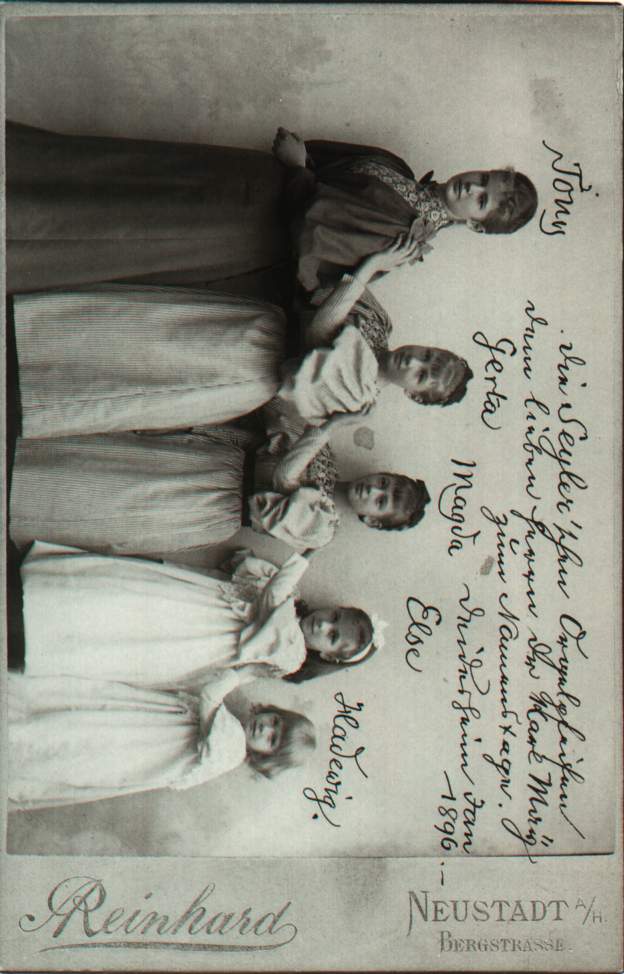 Tony
Die Seyler'schen Orgelpfeifen
dem lieben Herrn Dr Karl
zum Namenstage.
Gerta
Magda
Deidesheim Jan
1896.—
Else
Hadewig.
Reinhard
NEUSTADT A/H.
BERGSTRASSE.